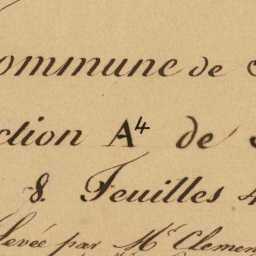 ommune de
ction A⁴ de
8. Feuilles 4
levée par Mr Clemen